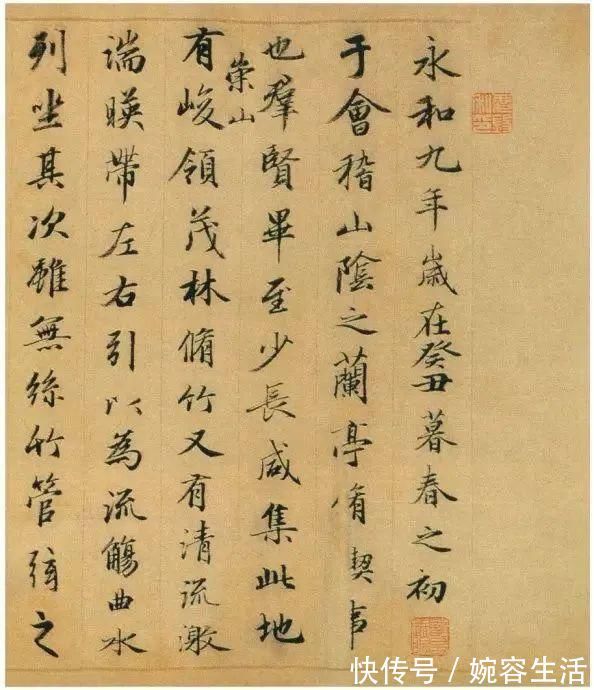 永和九年歲在癸丑暮春之初
于會稽山陰之蘭亭脩禊事
也羣賢畢至少長咸集此地
有崇山峻領茂林脩竹又有清流激
湍暎帶左右引以為流觴曲水
列坐其次雖無絲竹管弦之
快传号 / 婉容生活